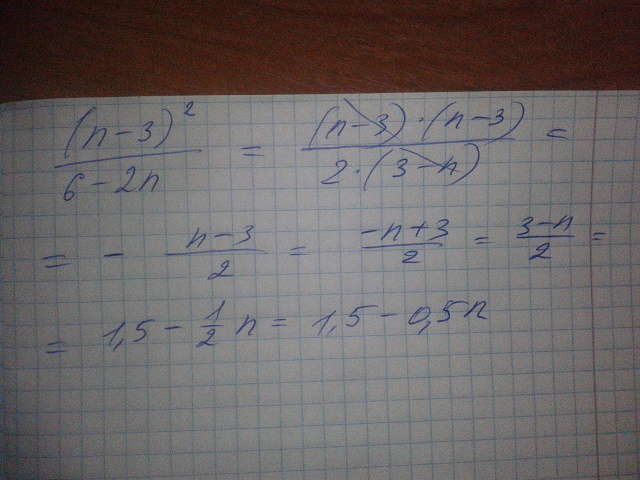 (n-3)²/(6-2n) = (n-3)·(n-3)/(2·(3-n)) =
= - (n-3)/2 = (-n+3)/2 = (3-n)/2 =
= 1,5 - 1/2 n = 1,5 - 0,5n